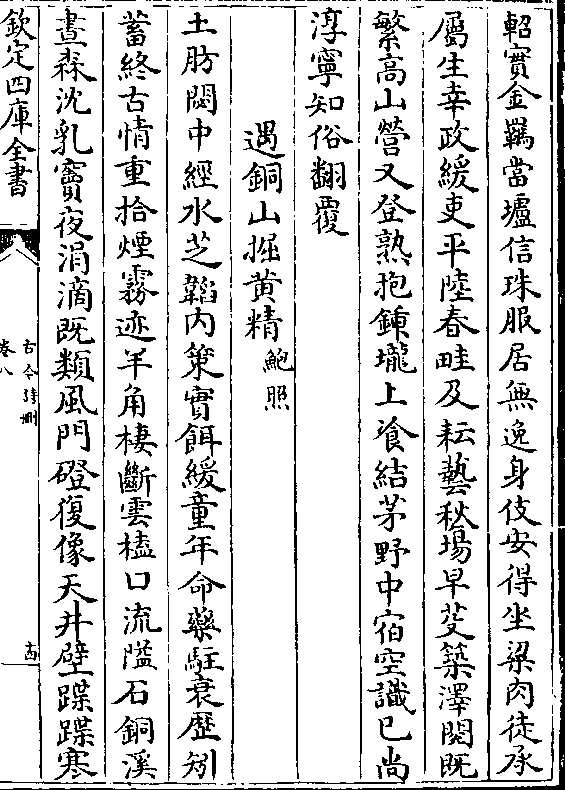 軺實金羈當壚信珠服居無逸身伎安得坐梁肉徒承
屬生幸政緩吏平陸春畦及耘藝秋場早芟築澤閱既
繁高山營又登熟抱鍤壠上飡結茅野中宿空識已尚
淳寧知俗翻覆
遇銅山掘黄精 鮑照
土肪閟中經水芝韜内策寳餌緩童年命藥駐衰歴矧
蓄終古情重拾煙霧迹羊角棲斷雲榼口流隘石銅溪
晝森沈乳竇夜涓滴既類風門磴復像天井壁蹀蹀寒
欽定四庫全書
古今詩刪
卷八